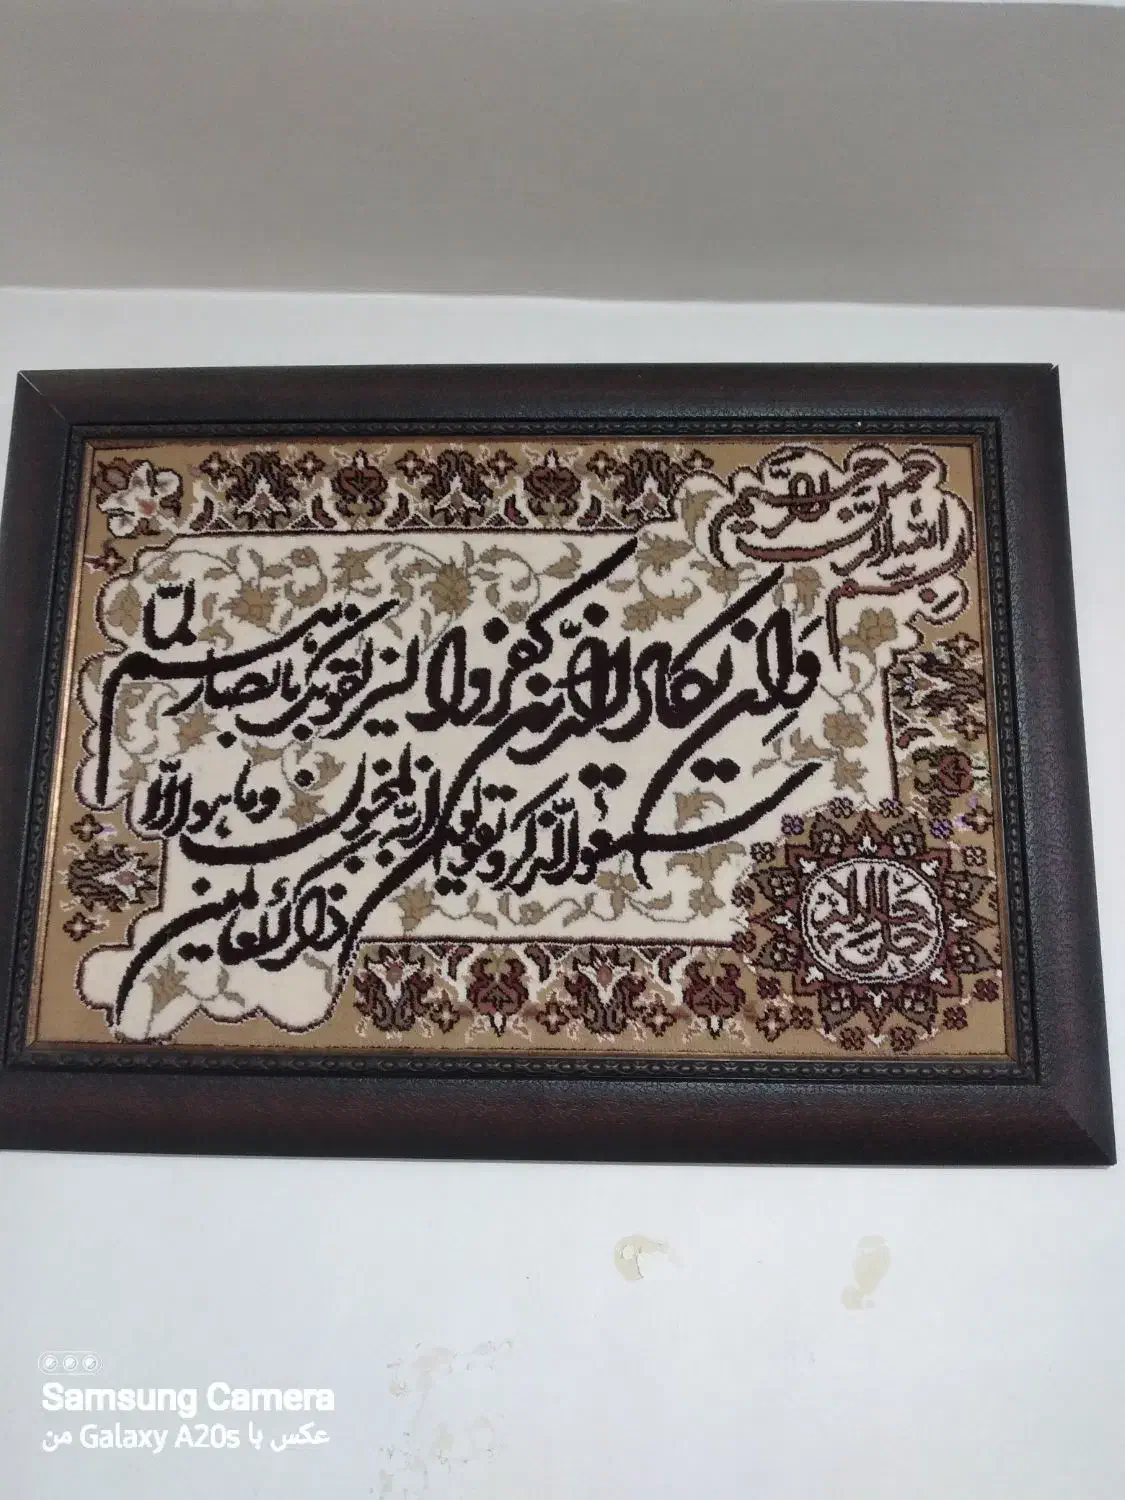 بسم الله الرحمن الرحیم
وَاِن یکاد الذین کفروا لیزلقونک بابصارهم لمّا
سمعوا الذکر و یقولون انه لمجنون و ما هو الّا
ذکر للعالمین
الله جل جلاله
Samsung Camera
عکس با Galaxy A20s من